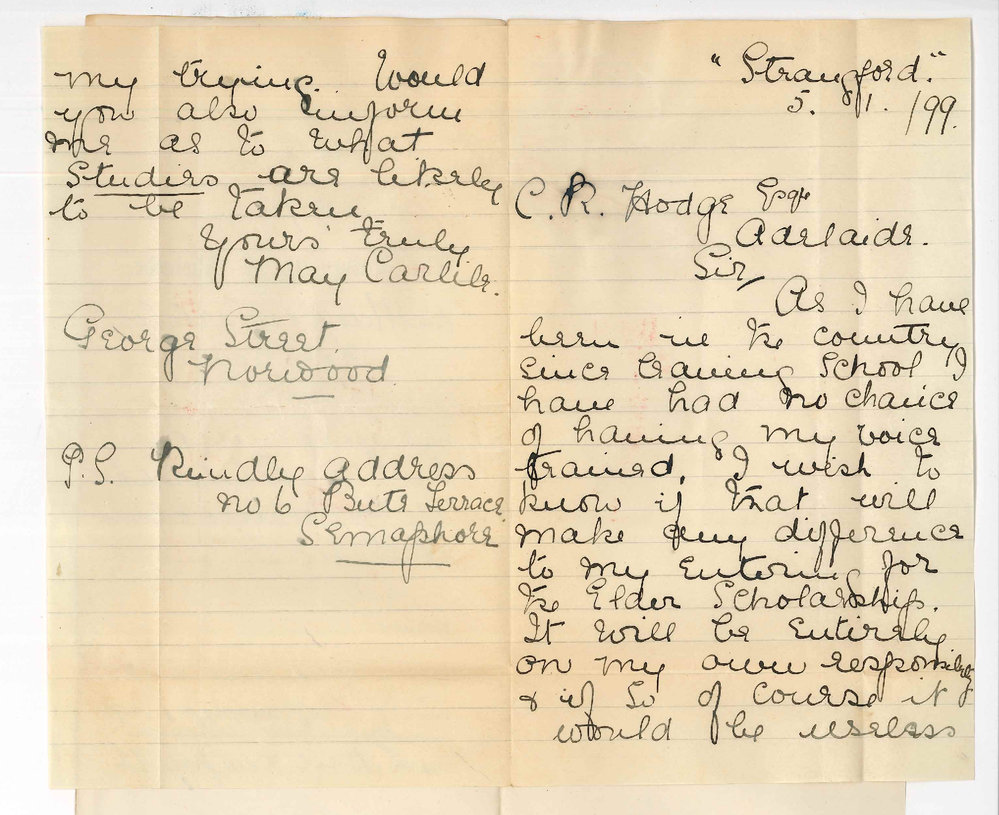 "Strangford."
5. 1. /99.
C. R. Hodge Esqr
Adelaide.
Sir/
As I have
been in the country
since leaving School I
have had no chance
of having my voice
trained, I wish to
know if that will
make any difference
to my entering for
the Elder Scholarship.
It will be entirely
on my own responsibility
& if so of course it
would be useless
my trying. Would
you also inform
me as to what
Studies are likely
to be taken
Yours truly
May Carlile.
George Street.
Norwood
P.S. Kindly address
no 6 Bute Terrace
Semaphore